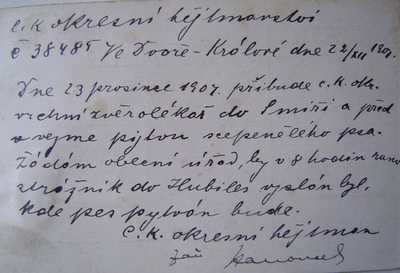 C.k. okresní héjtmanství
č 38485 Ve Dvoře-Králové dne 22/XII 1907.
Dne 23 prosince 1907. přibude c.k. okr.
vrchní zvěrolékař do Smiři a před
vejme pytvu scepenělého psa.
Žádám obecní úřad, by v 8 hodin ráno
strážník do Hubiles vyslán byl,
kde pes pytván bude.
C.k. okresní héjtman